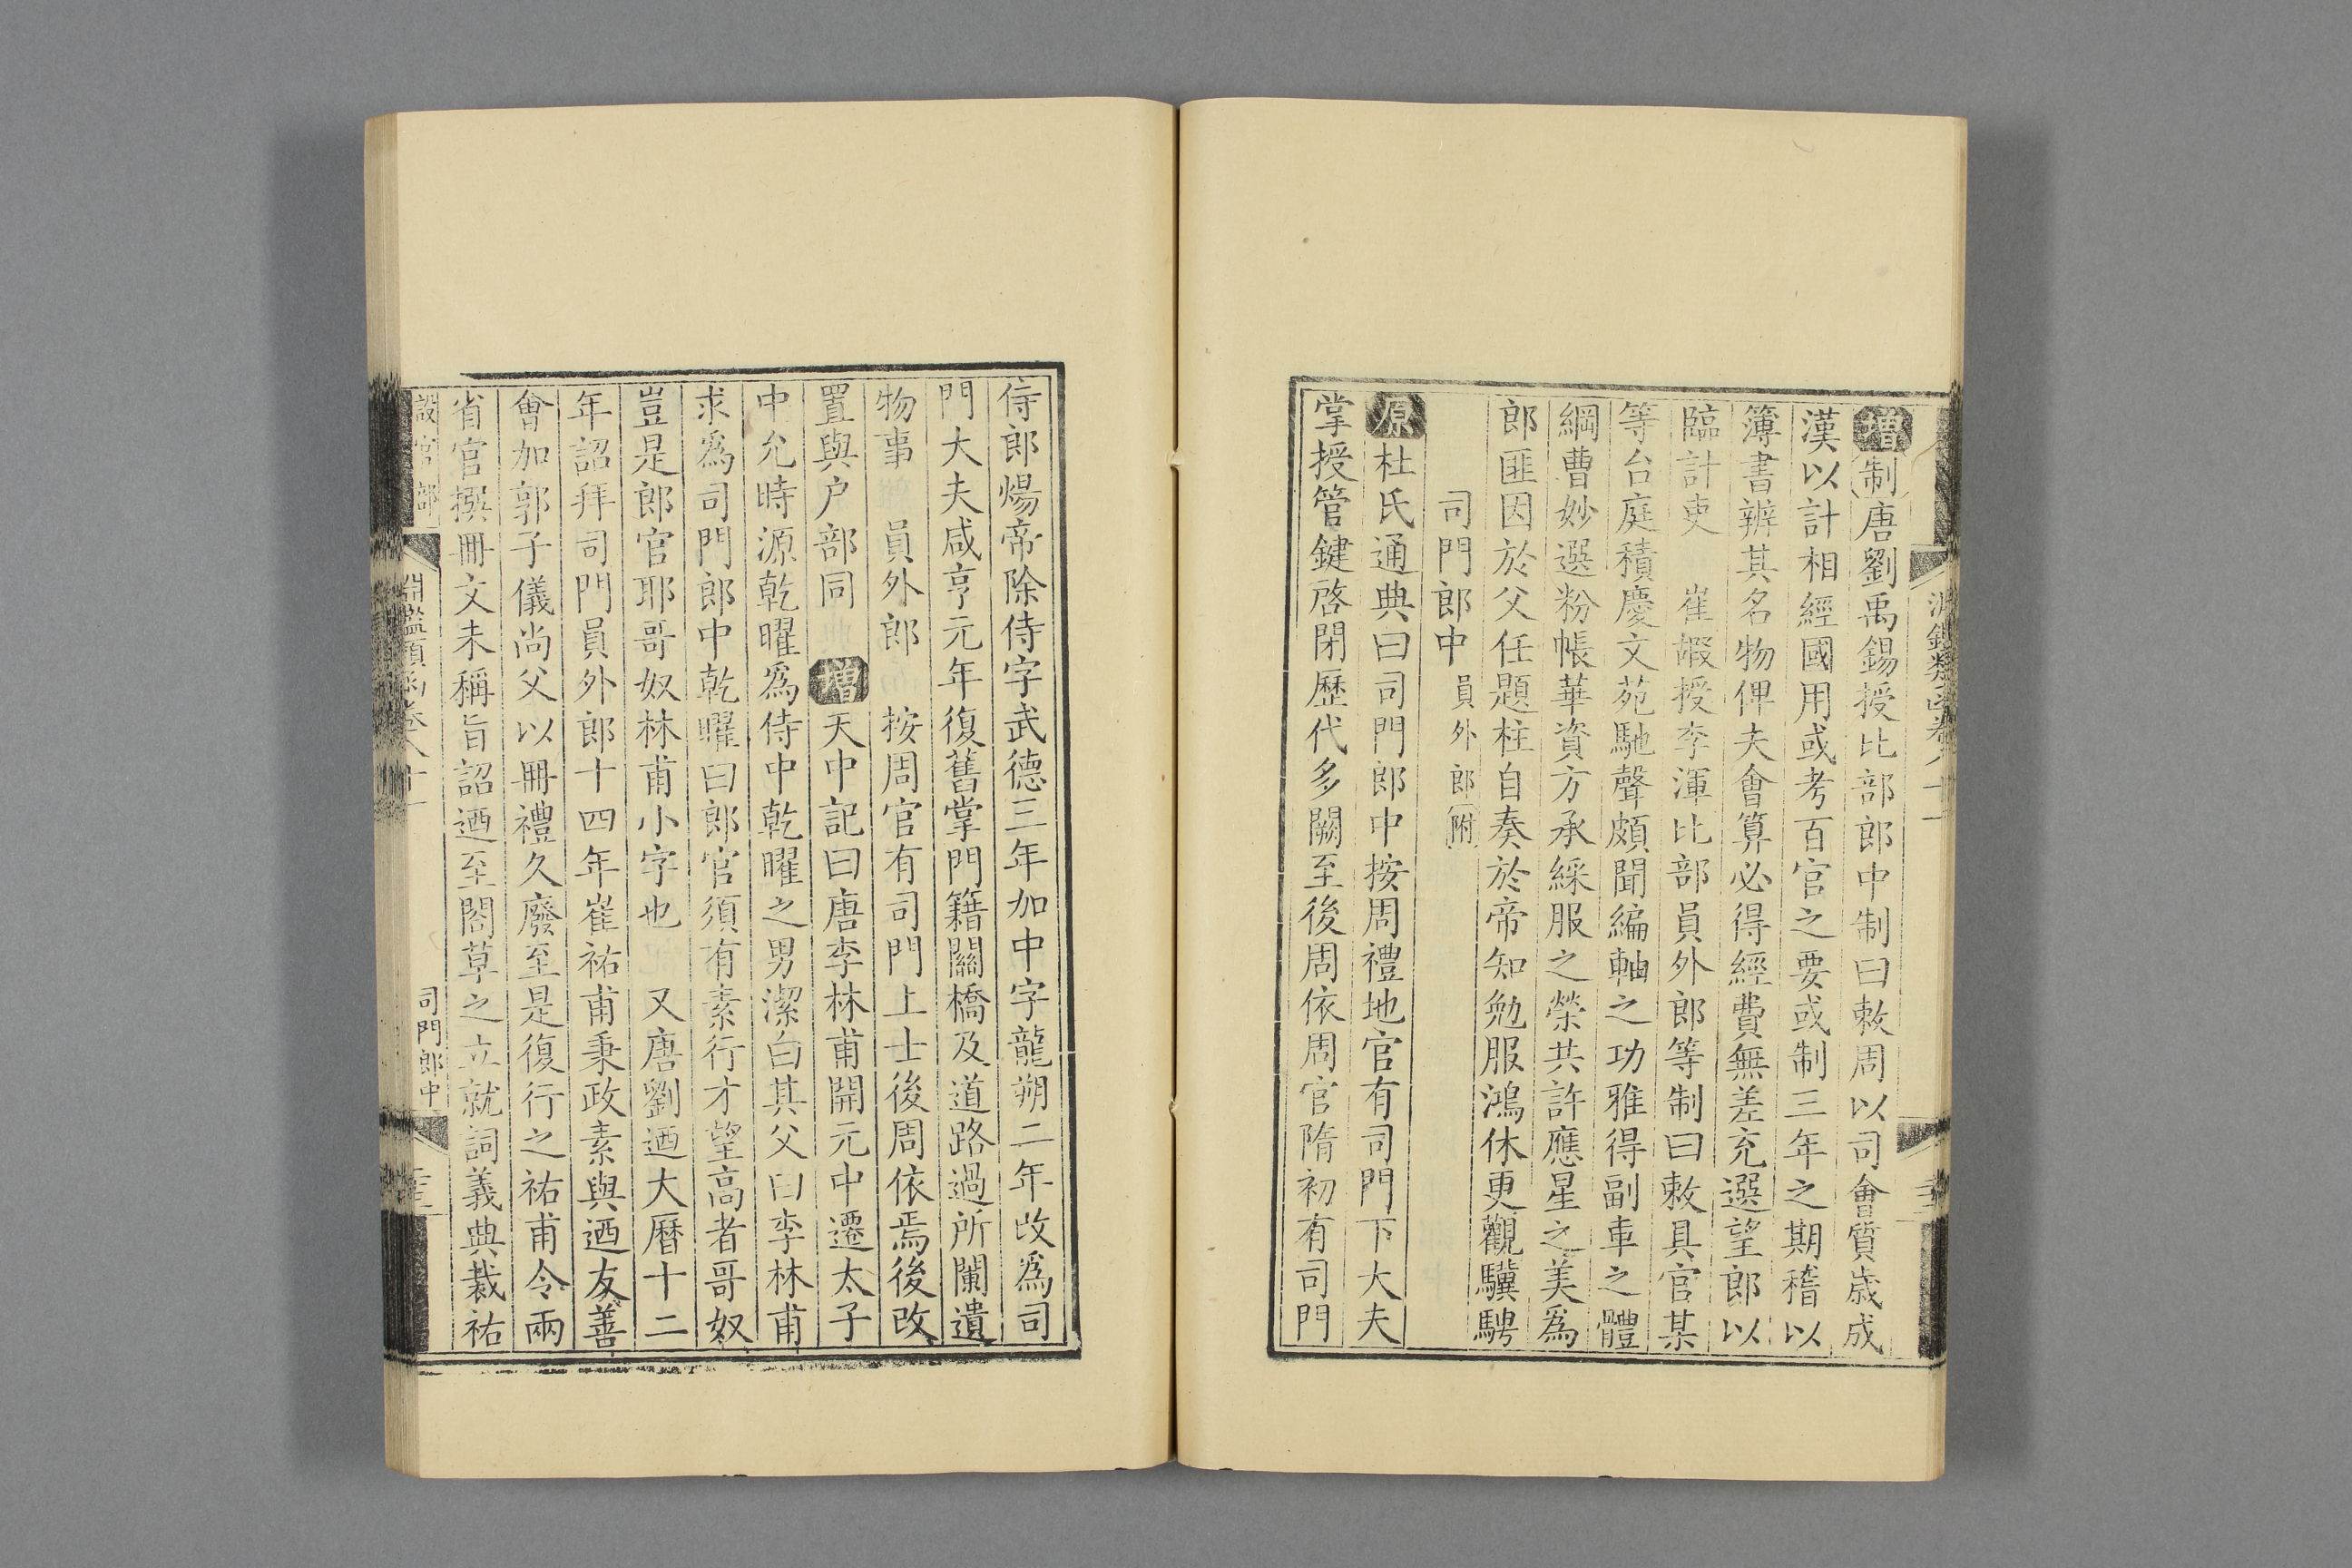 增制唐劉禹錫授比部郎中制曰敕周以司會質歲成
漢以計相經國用或考百官之要或制三年之期稽以
簿書辨其名物俾夫會算必得經費無差充選望郎以
臨計吏　崔嘏授李渾比部員外郎等制曰敕具官某
等台庭積慶文苑馳聲頗聞編軸之功雅得副車之體
綱曹妙選粉帳華資方承綵服之榮共許應星之美爲
郎匪因於父任題柱自奏於帝知勉服鴻休更觀驥騁
司門郎中員外郎附
原杜氏通典曰司門郎中按周禮地官有司門下大夫
掌授管鍵啓閉歷代多闕至後周依周官隋初有司門
侍郎煬帝除侍字武德三年加中字龍朔二年改爲司
門大夫咸亨元年復舊掌門籍關橋及道路過所闌遺
物事　員外郎　按周官有司門上士後周依焉後改
置與户部同　增天中記曰唐李林甫開元中遷太子
中允時源乾曜爲侍中乾曜之男潔白其父曰李林甫
求爲司門郎中乾曜曰郎官須有素行才望高者哥奴
豈是郎官耶哥奴林甫小字也　又唐劉迺大曆十二
年詔拜司門員外郎十四年崔祐甫秉政素與迺友善
會加郭子儀尚父以冊禮久廢至是復行之祐甫令兩
省官撰冊文未稱旨詔迺至閤草之立就詞義典裁祐
設官部
淵鑑類函卷八十一
司門郎中